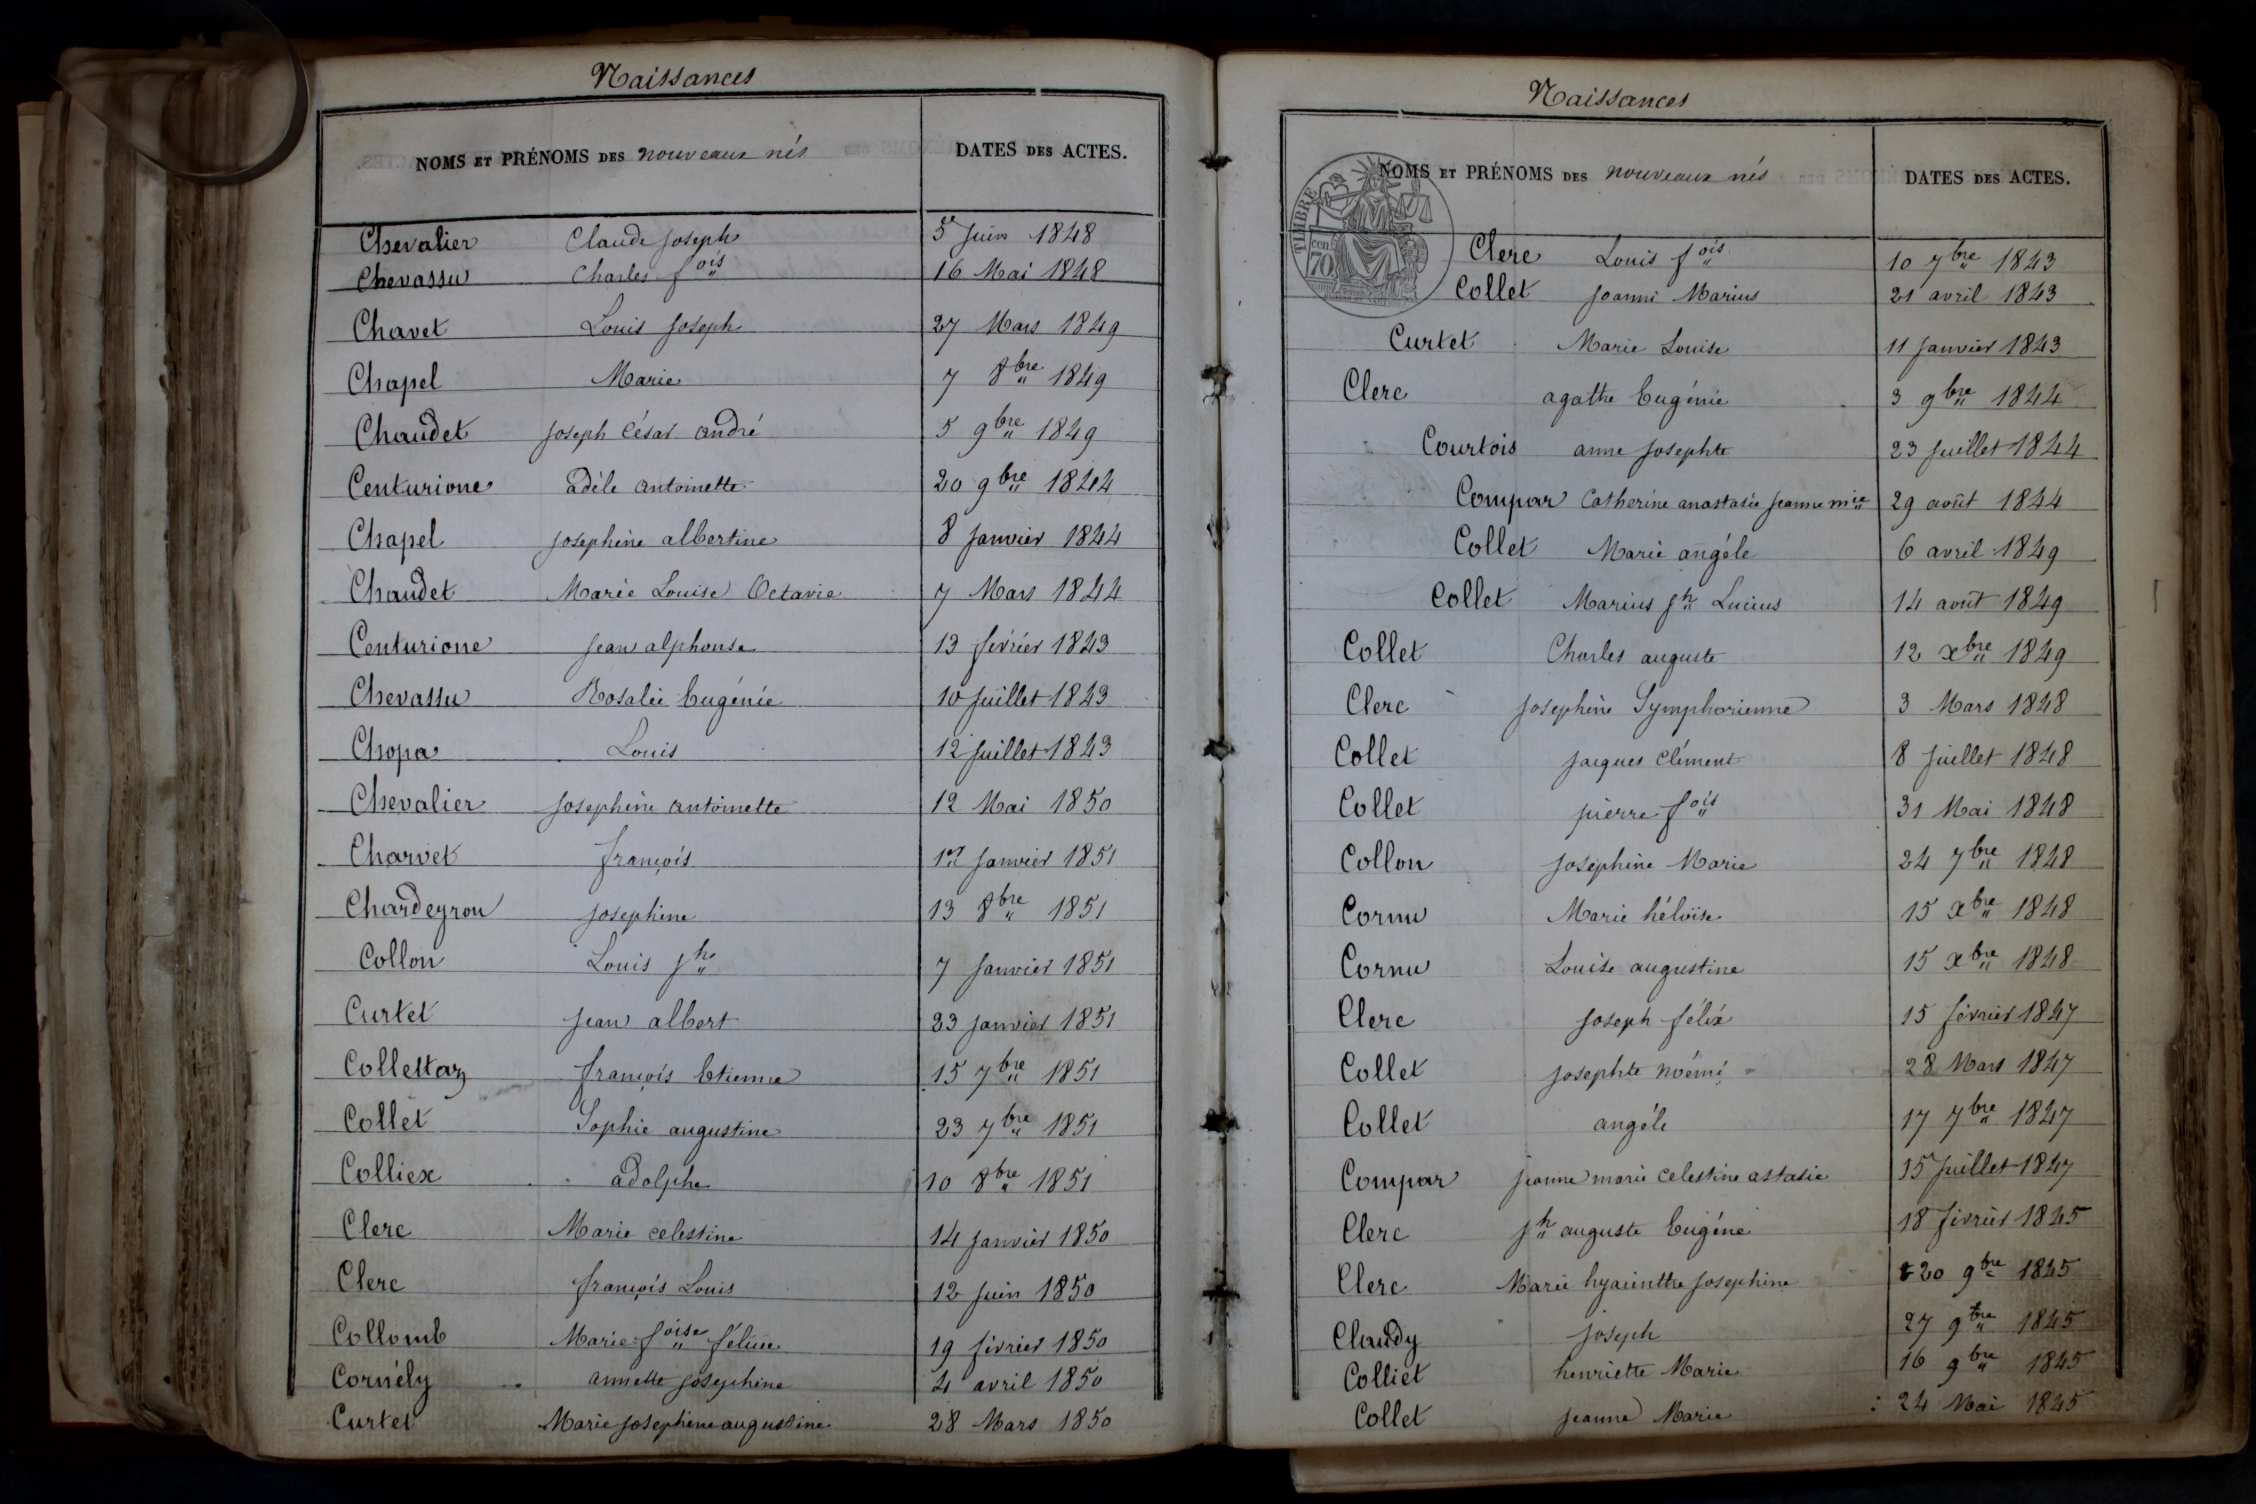 Naissances
NOMS ET PRÉNOMS DES nouveaux nés DATES DES ACTES.
Chevalier Claude Joseph 5 Juin 1848
Chevassu Charles fois 16 Mai 1848
Chavet Louis Joseph 27 Mars 1849
Chapel Marie 7 8bre 1849
Chaudet Joseph César André 5 9bre 1849
Centurione adèle antoinette 20 9bre 1844
Chapel Josephine albertine 8 Janvier 1844
Chaudet Marie Louise Octavie 7 Mars 1844
Centurione Jean alphonse 13 février 1843
Chevassu Rosalie Eugénie 10 Juillet 1843
Chopa Louis 12 Juillet 1843
Chevalier Josephine antoinette 12 Mai 1850
Charvet françois 1er Janvier 1851
Chardeyron Josephine 13 8bre 1851
Collon Louis Jh 7 Janvier 1851
Curtet Jean albert 23 Janvier 1851
Collettaz françois Etienne 15 7bre 1851
Collet Sophie augustine 23 7bre 1851
Colliex adolphe 10 8bre 1851
Clerc Marie celestine 14 Janvier 1850
Clerc françois Louis 12 Juin 1850
Collomb Marie foise féline 19 février 1850
Cornély annette Josephine 4 avril 1850
Curtet Marie Josephine augustine 28 Mars 1850
Naissances
NOMS ET PRÉNOMS DES nouveaux nés DATES DES ACTES.
TIMBRE
cen
70
Clerc Louis fois 10 7bre 1843
Collet Joanni Marius 21 avril 1843
Curtet Marie Louise 11 Janvier 1843
Clerc agathe Eugénie 3 9bre 1844
Courtois anne Josephte 23 Juillet 1844
Compar Catherine anastasie Jeanne mie 29 août 1844
Collet Marie angéle 6 avril 1849
Collet Marius Jh Lucius 14 août 1849
Collet Charles auguste 12 xbre 1849
Clerc Josephine Symphorienne 3 Mars 1848
Collet Jacques Clément 8 Juillet 1848
Collet pierre fois 31 Mai 1848
Collon Joséphine Marie 24 7bre 1848
Cornu Marie héloïse 15 xbre 1848
Cornu Louise augustine 15 xbre 1848
Clerc Joseph félix 15 février 1847
Collet Josephte noémi 28 Mars 1847
Collet angéle 17 7bre 1847
Compar Jeanne marie celestine astasie 15 Juillet 1847
Clerc Jh auguste Eugéne 18 février 1845
Clerc Marie hyacinthe Josephine 20 9bre 1845
Claudy Joseph 27 9bre 1845
Colliet henriette Marie 16 9bre 1845
Collet Jeanne Marie 24 Mai 1845